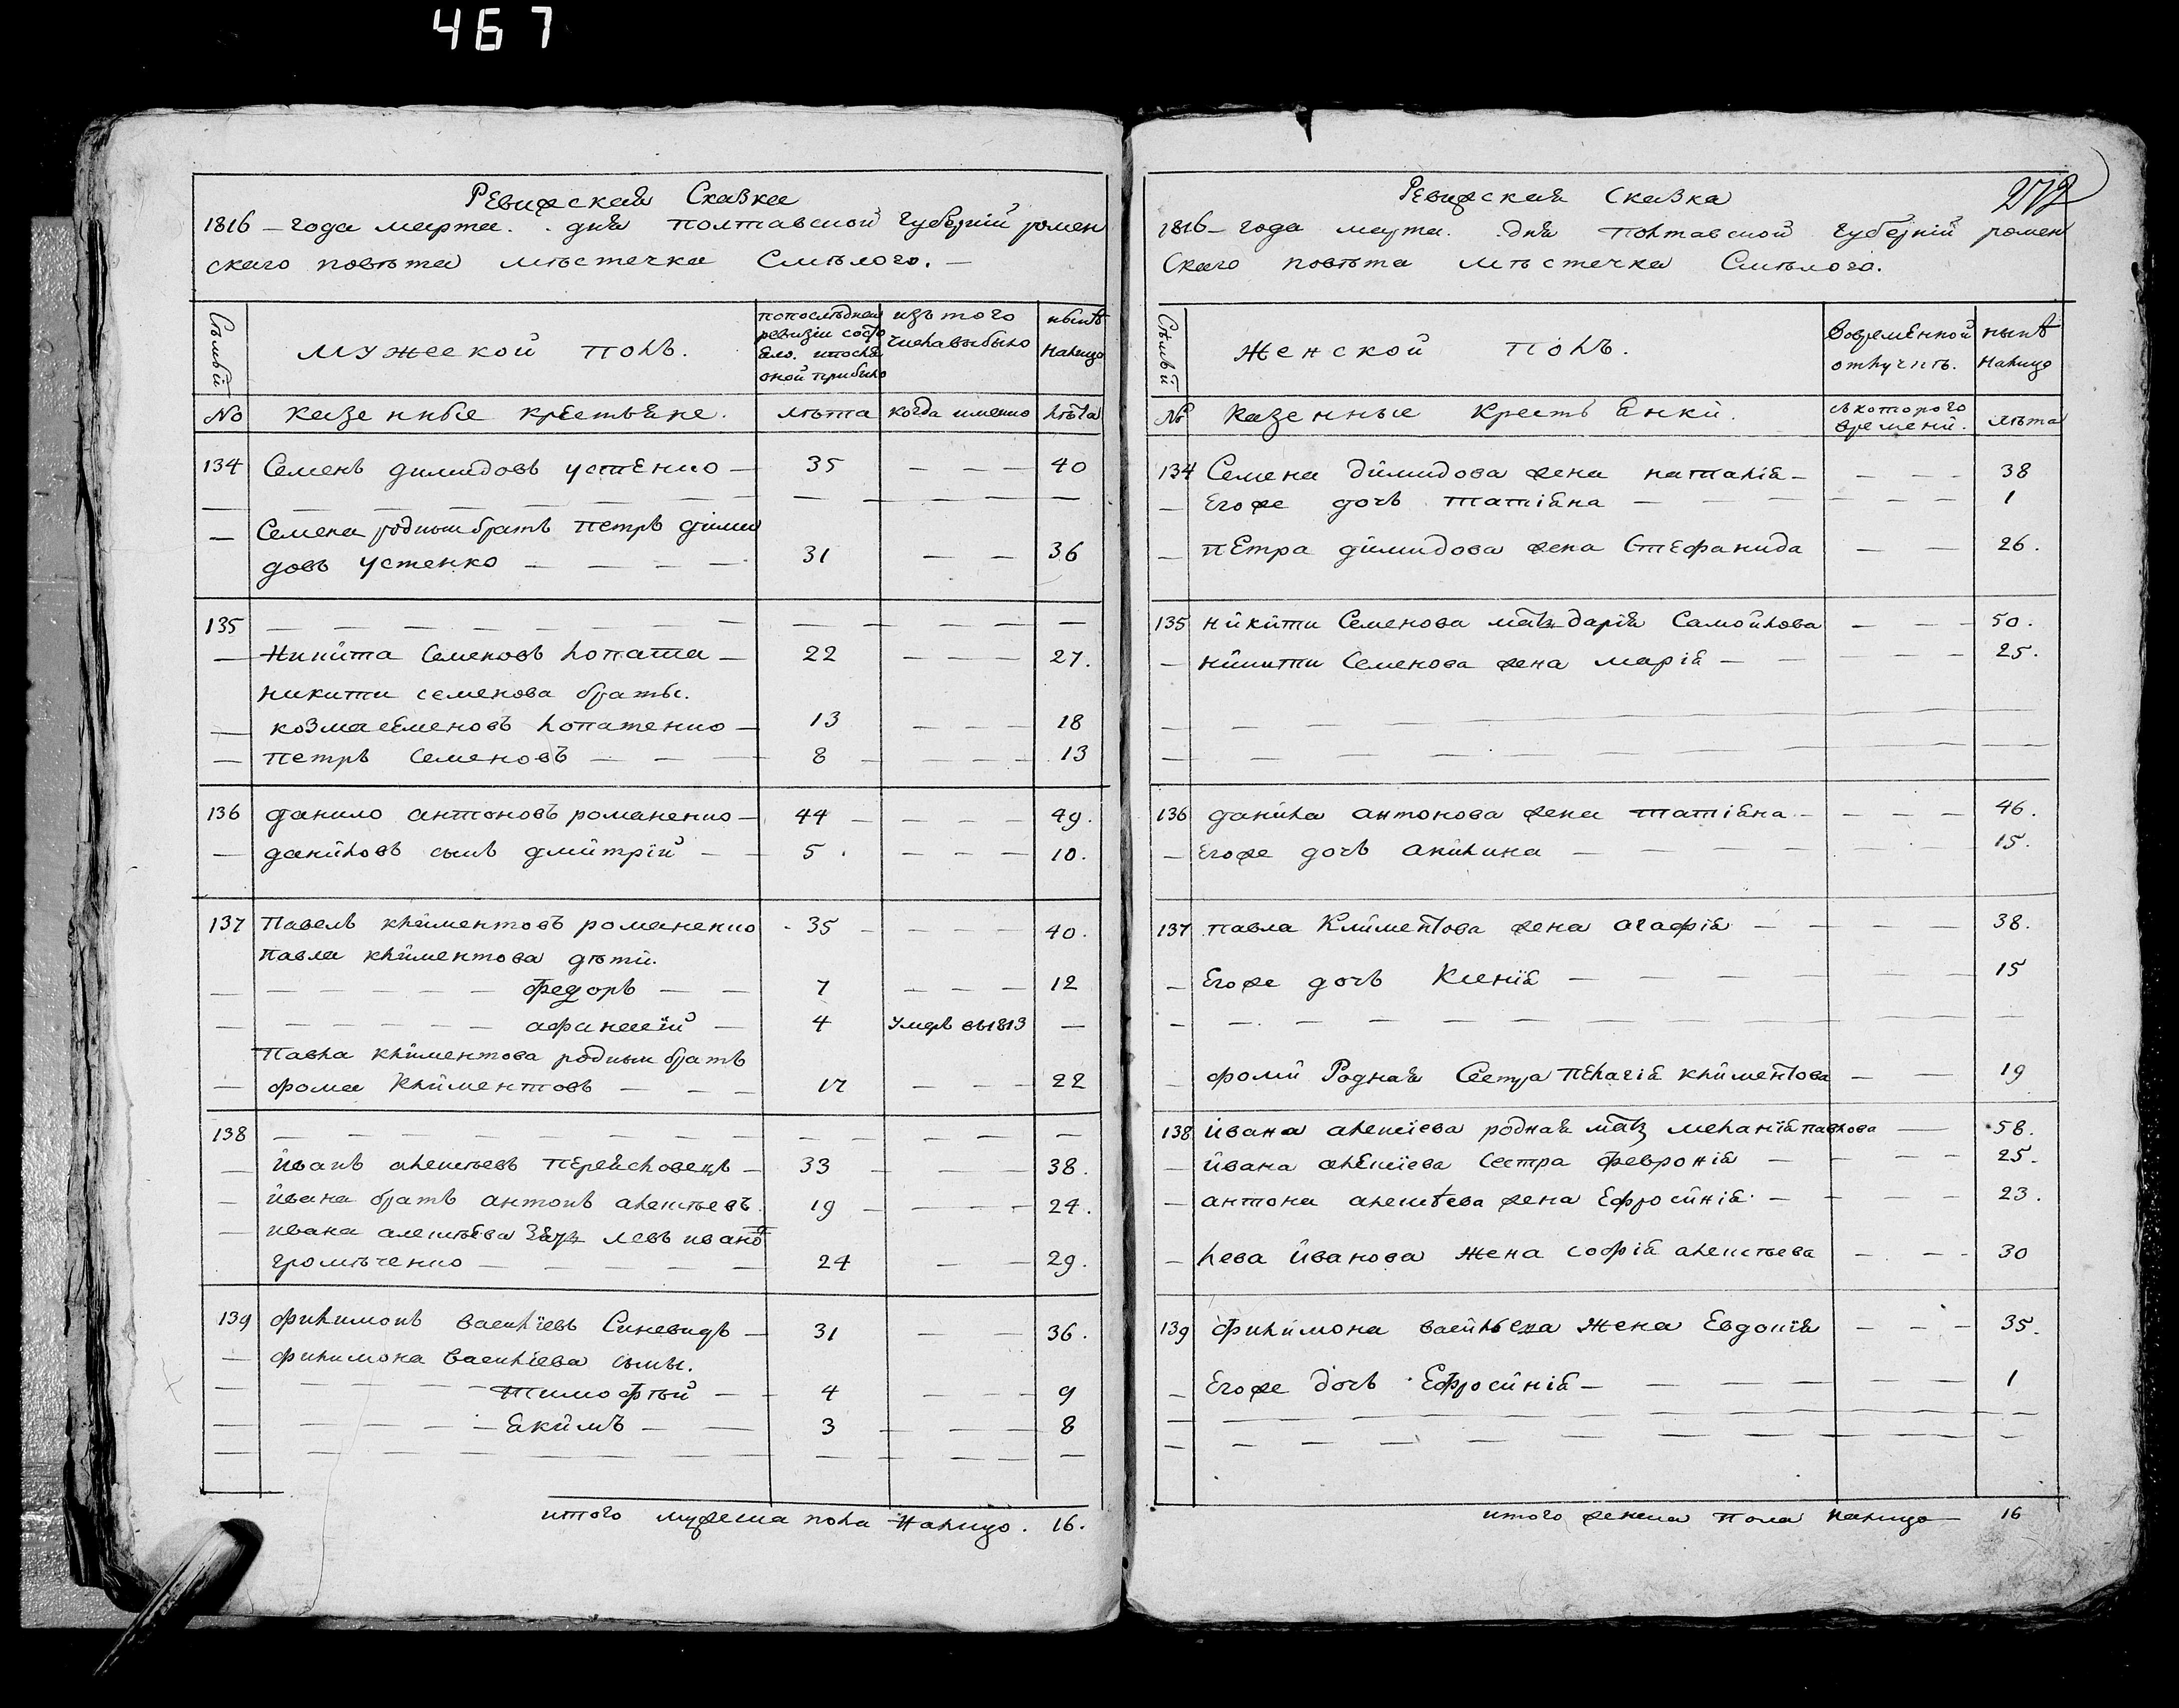 467
Ревизская Сказка
1816 – года марта . . дня полтавской губернїй ромен
скаго повѣта мѣстечка Смѣлого. –
Сѣмьй
мужеской полъ.
попослѣдней ревизїи состо яло. ипослѣ оной прибыло
изъ того числавыбыло
нынѣ налицо
No казенные крестьяне. лѣта когда именно лѣта
134 Семенъ димидовъ устенко – 35 – – – 40
– Семена родный братъ петръ дими
довъ устенко – – – – 31 – – 36
135 – – – – – – – –
– Никита Семеновъ лопата – 22 – – – 27.
никити семенова браты.
– козма семеновъ лопатенко – 13 – – – 18
– петръ Семеновъ – – – 8 – – – – 13
136 данило антоновъ романенко – 44 – – – – 49.
– даниловъ сынъ дмитрїй – – 5 . – – – 10.
137 Павелъ климентовъ романенко - 35 – – – – 40.
павла климентова дѣти.
– – – – – – федоръ – – 7 – – – 12
– – – – – – афанасїй – 4 Умеръ въ1813 –
Павла климентова родный братъ
– фома Климентовъ – – – 17 – – – 22
138 – – – – – – – – – – – –
– иванъ алексѣевъ перейсловецъ – 33 – – – 38.
– ивана братъ антонъ алексѣевъ. 19 – – – – 24.
– ивана алексѣева зять левъ ивано
громѣченко – – – – – 24 – – 29.
139 филимонъ василїевъ Синевидъ – 31 – – 36.
– филимона василїева сыны.
– – – – тимофѣй – – 4 – – – 9
– – – – – якимъ – – 3 – – – 8
– – – – – – – – – –
итого мужеска пола налицо. 16.
272
Ревизская сказка
1816 – года марта. .дня полтавской губернїй ромен
Скаго повѣта мѣстечка Смѣлого.
Сѣмьй
Женской полъ.
Вовременной отлучкѣ.
нынѣ налицо
No казенные крестьянки. съ которого времени. лѣта
134 Семена димидова жена наталїя – – – – 38
– Егоже дочъ татїяна – – – – – 1
– петра димидова жена Стефанида – – 26.
135 никити Семенова мать дарїя Самойлова – – – 50.
– никити Семенова жена марїя – – – – – 25.
– – – – – – – – –
– – – – – – – – –
136 данила антонова жена татїяна – – – – 46.
– Егоже дочъ акилина – – – – – – 15.
137 павла Климентова жена агафїя – – – – 38.
– Егоже дочъ Ксенїя – – – – – – 15
– – – – – – – – –
– фоми Родная Сестра пелагїя климентова – – 19
138 ивана алексїева родная мать меланїя павлова – 58.
– ивана алексїева сестра февронїя – – – – 25.
– антона алексѣева жена Ефросинїя – – – – 23.
– лева иванова жена софїя алексѣева – – – 30
139 филимона васильева жена Евдокїя – – – 35.
– Егоже дочъ Ефросинїя – – – – – – 1
– – – – – – – – –
– – – – – – – – –
итого женска пола налицо – 16